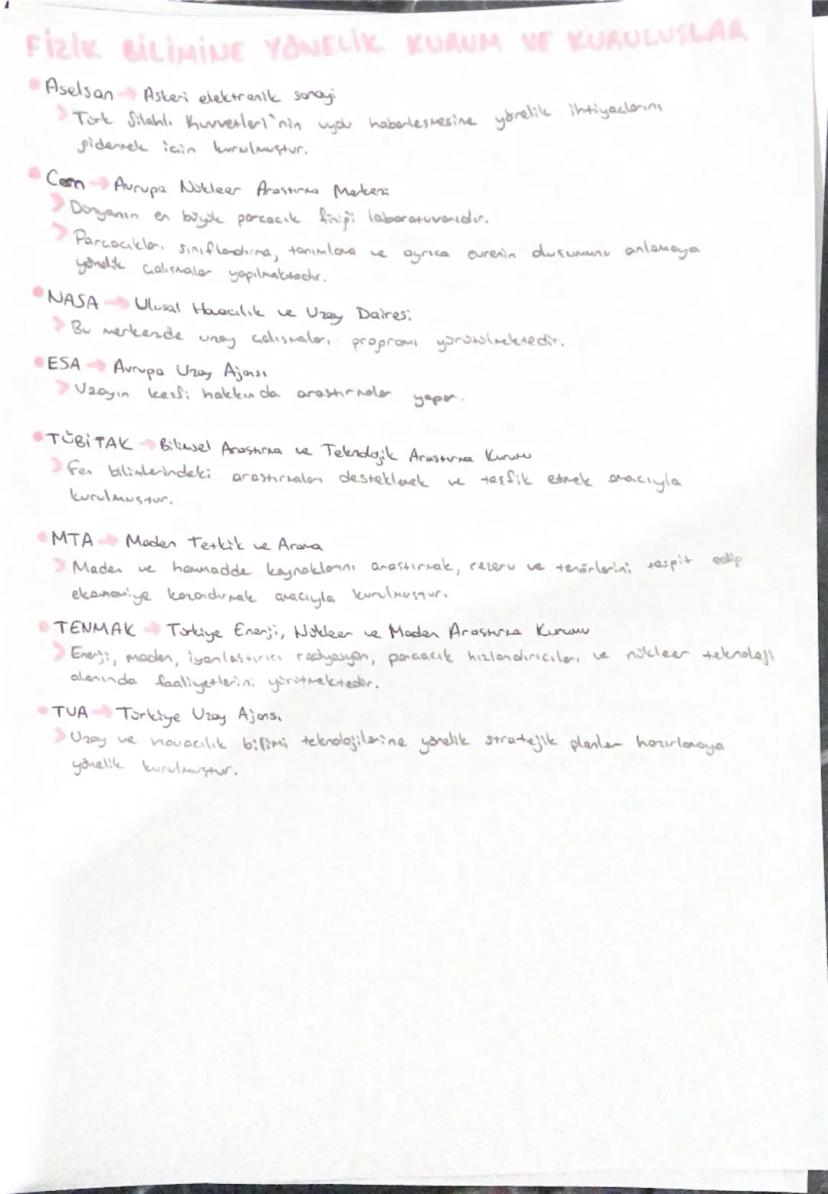 FİZİK BİLİMİNE YÖNELİK KURUM VE KURULUSLAR
Aselsan → Askeri elektronik sanayi
Türk Silahlı Kuvvetleri'nin uydu haberleşmesine yönelik ihtiyaçlarını
gidermek için kurulmuştur.
Cern → Avrupa Nükleer Araştırma Merkezi
Dünyanın en büyük parçacık fiziği laboratuvarıdır.
Parçacıkları sınıflandırma, tanımlama ve ayrıca evrenin oluşumunu anlamaya
yönelik çalışmalar yapılmaktadır.
NASA → Ulusal Havacılık ve Uzay Dairesi
Bu merkezde uzay çalışmaları programı yürütülmektedir.
ESA → Avrupa Uzay Ajansı
Uzayın keşfi hakkında araştırmalar yapar.
TÜBİTAK → Bilimsel Araştırma ve Teknolojik Araştırma Kurumu
Fen bilimlerindeki araştırmaları desteklemek ve teşfik etmek amacıyla
kurulmuştur.
MTA → Maden Tetkik ve Arama
Maden ve hammadde kaynaklarını araştırmak, rezerv ve tenörlerini tespit edip
ekonomiye kazandırmak amacıyla kurulmuştur.
TENMAK → Türkiye Enerji, Nükleer ve Maden Araştırma Kurumu
Enerji, maden, iyonlaştırıcı radyasyon, parçacık hızlandırıcıları ve nükleer teknoloji
alanında faaliyetlerini yürütmektedir.
TUA → Türkiye Uzay Ajansı
Uzay ve havacılık bilimi teknolojilerine yönelik stratejik planlar hazırlamaya
yönelik kurulmuştur.